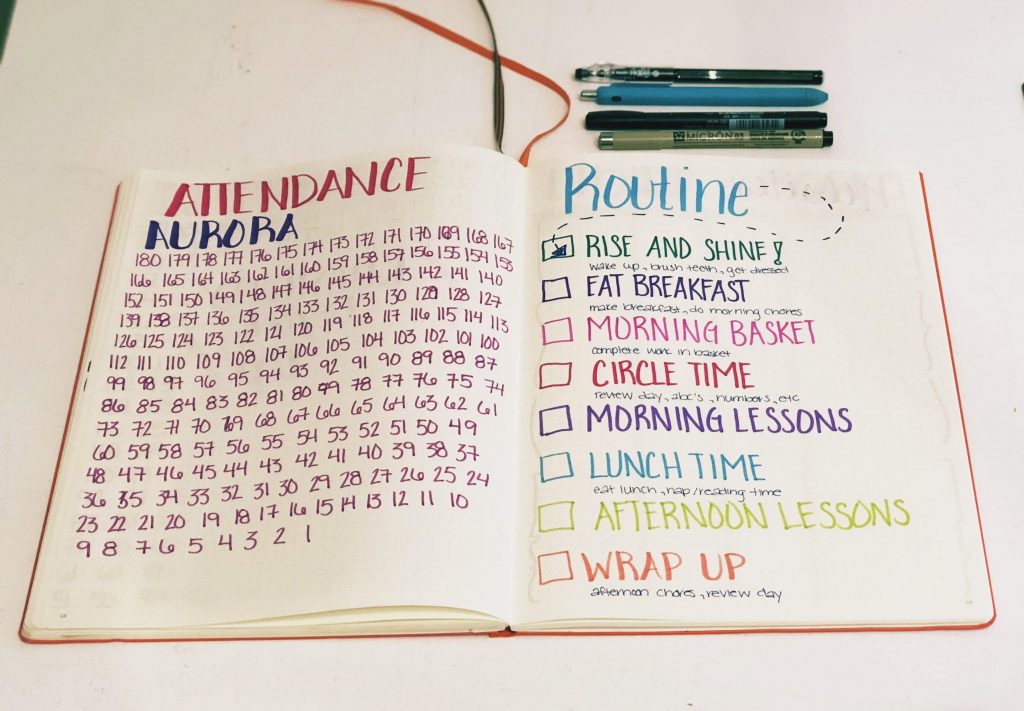 ATTENDANCE
AURORA
180 179 178 177 176 175 174 173 172 171 170 169 168 167
166 165 164 163 162 161 160 159 158 157 156 155 154 153
152 151 150 149 148 147 146 145 144 143 142 141 140
139 138 137 136 135 134 133 132 131 130 129 128 127
126 125 124 123 122 121 120 119 118 117 116 115 114 113
112 111 110 109 108 107 106 105 104 103 102 101 100
99 98 97 96 95 94 93 92 91 90 89 88 87
86 85 84 83 82 81 80 79 78 77 76 75 74
73 72 71 70 69 68 67 66 65 64 63 62 61
60 59 58 57 56 55 54 53 52 51 50 49
48 47 46 45 44 43 42 41 40 39 38 37
36 35 34 33 32 31 30 29 28 27 26 25 24
23 22 21 20 19 18 17 16 15 14 13 12 11 10
9 8 7 6 5 4 3 2 1
MICRON 03
Routine
RISE AND SHINE!
wake up, brush teeth, get dressed
EAT BREAKFAST
make breakfast, do morning chores
MORNING BASKET
complete work in basket
CIRCLE TIME
review day, abc's, numbers, etc
MORNING LESSONS
LUNCH TIME
eat lunch, nap/reading time
AFTERNOON LESSONS
WRAP UP
afternoon chores, review day